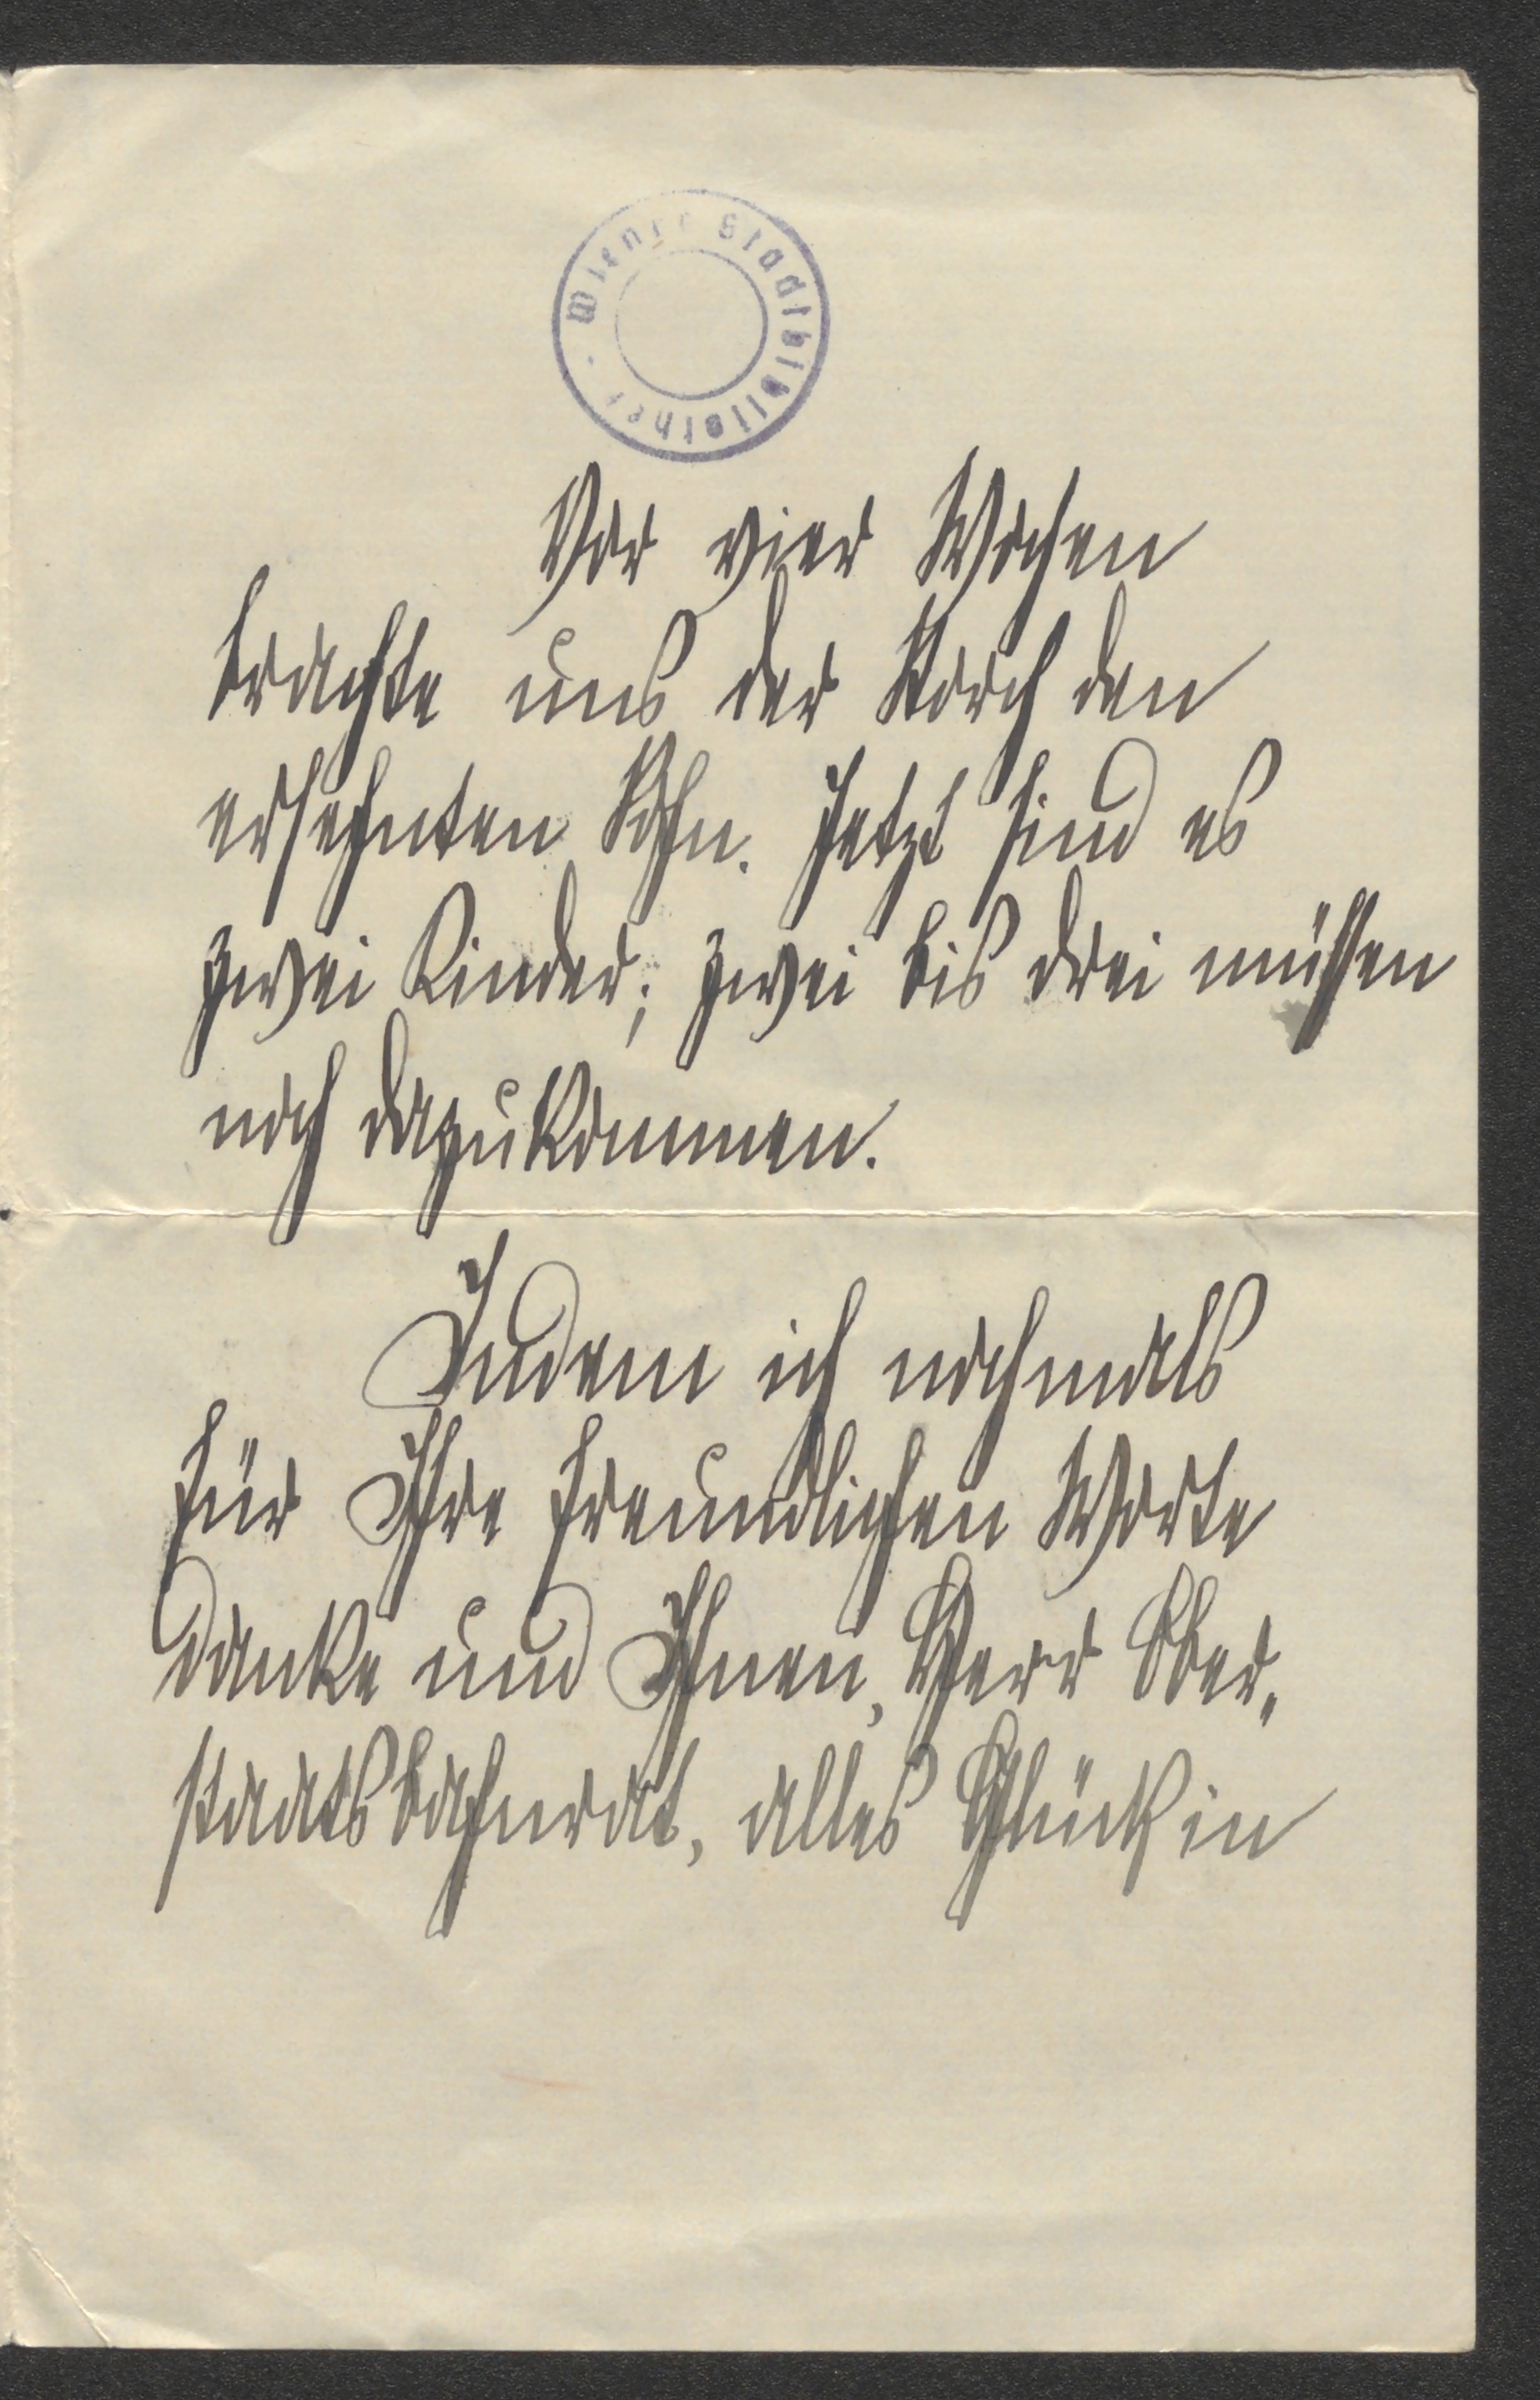 Wiener Stadtbibliothek
Vor vier Wochen
brachte uns der Storch den
ersehnten Sohn. Jetzt sind es
zwei Kinder; zwei bis drei müssen
noch dazukommen.
Indem ich nochmals
für Ihre freundlichen Worte
danke und Ihnen, Herr Ober„
staatsbahnrat, alles Glück in